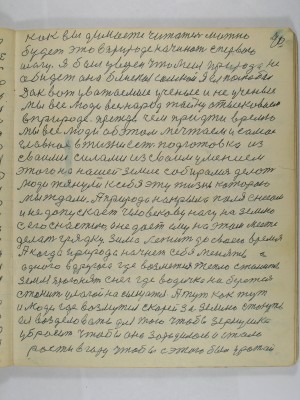 как вы думаете читатель можно
будет это в природе начинать с первого
шагу. Я был уверен что меня природа не
обидит она
За вот уважаемые ученые и не ученые
мы все люди весь народ тайну отыскиваем
в природе. прежде чем придти время
мы все люди об этом мечтаем и самое
главное в жизни есть подготовка из
своими силами из своим умением
этого на нашей земле собирали делят
люди тянули к себе эту жизнь которою
мы ждали. А природа накрыла поля снегом
и не допускает человеку ногу на землю
его счастию, она дает ему на этом месте
делать грядку. зима лежит до своего время
А когда природа начнет себя менять с
одного в другого где возьмется тепло станет
земля прогонять снег где водичка на буграх
станет игрой на солнышке А тут как тут
и люди где возьмутся скорей за землю станут
ее возделовать для того чтобы зернышко
убросить чтобы оно зародилося и стало
расти в году чтобы с этого был урожай